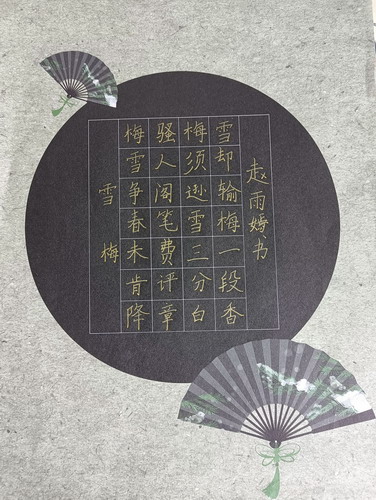 雪梅
梅雪争春未肯降
骚人阁笔费评章
梅须逊雪三分白
雪却输梅一段香
赵雨嫣书